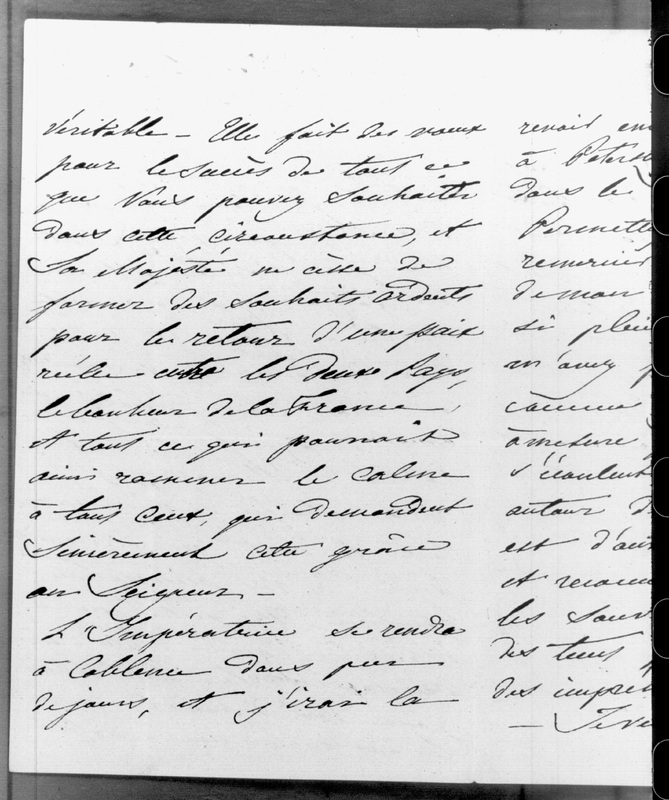 véritable – Elle fait des voeux
pour le succès de tout ce
que Vous pouvez souhaiter
dans cette circonstance, et
Sa Majesté ne cesse de
former des souhaits ardents
pour le retour d'une paix
réelle entre les deux Pays,
le bonheur de la France,
et tout ce qui pourrait
ainsi ramener le calme
à tous ceux, qui demandent
sincèrement cette grâce
au Seigneur –
L'Impératrice se rendra
à Coblence dans peu
de jours, et j'irai la
revoir en
à Petersb
dans le
Permette
remercié
de mon
si plei
m'avez p
comme
à mesure
s'écoulent
autour d
est d'au
et reconn
les souv
des tems
des impré
– Je v